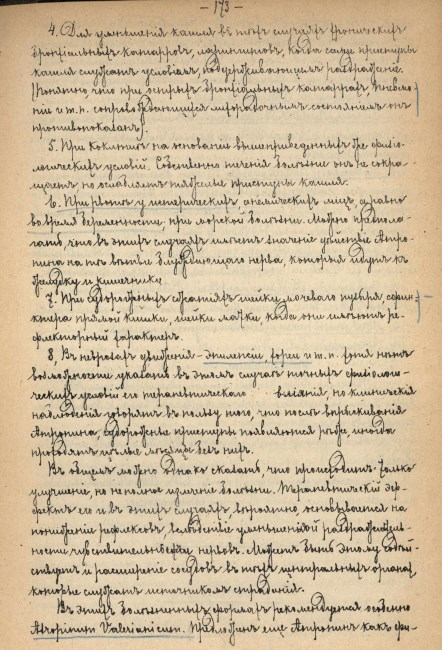 — 173 —
4. Для уменьшенія кашля въ тѣхъ случаяхъ хроническихъ
бронхіальныхъ катарровъ, ларингитовъ, когда сами приступы
кашля служатъ условіемъ, поддерживающимъ раздраженіе.
(Понятно, что при острыхъ бронхіальныхъ катаррахъ, пневмо-
ніи и т. п. сопровождающихся лихорадочнымъ состояніемъ онъ
противопоказанъ).
5. При коклюшѣ на основаніи вышеприведенныхъ же физіо-
логическихъ условій. Собственно теченія болѣзни онъ не сокра-
щаетъ, но ослабляетъ тяжелые приступы кашля.
6. При рвотѣ у истерическихъ, анемическихъ лицъ, а равно
во время беременности, при морской болѣзни. Можно предпола-
гать, что въ этихъ случаяхъ имѣетъ значеніе дѣйствіе Атро-
пина на тѣ вѣтви блуждающаго нерва, которыя идутъ къ
желудку и кишечнику.
7. При судорожныхъ сжатіяхъ шейки мочеваго пузыря, сфин-
ктера прямой кишки, шейки матки, когда они имѣютъ ре-
флекторный характеръ.
8. Въ неврозахъ движенія – эпилепсіи, хореи и т. п. Хотя нѣтъ
возможности указать въ этомъ случаѣ точныхъ физіологи-
ческихъ условій его терапевтическаго вліянія, но клиническія
наблюденія говорятъ въ пользу того, что послѣ впрыскиванія
Атропина, судорожные приступы появляются рѣже, иногда
проходятъ цѣлые мѣсяцы безъ нихъ.
Въ общемъ можно однако сказать, что происходитъ только
улучшеніе, но не полное излѣченіе болѣзни. Терапевтическій эф-
фектъ его и въ этихъ случаяхъ, вѣроятно, основывается на
пониженіи рефлексовъ, вслѣдствіе уменьшенной раздражитель-
ности чувствительныхъ нервовъ. Можетъ быть этому содѣй-
ствуетъ и расширеніе сосудовъ въ тѣхъ центральныхъ органахъ,
которые служатъ источникомъ страданія.
Въ этихъ болѣзненныхъ формахъ рекомендуется особенно
Atropinum Valerianicum. Предложенъ еще Атропинъ какъ фи-